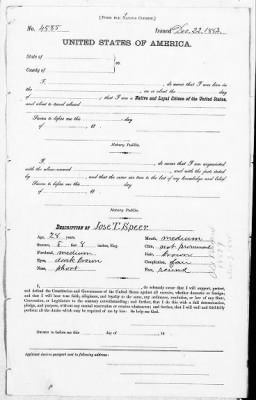 [FORM FOR NATIVE CITIZEN.]
No. 4585 Issued Dec. 22, 1882.
UNITED STATES OF AMERICA.
State of
County of
ss.
I, , do swear that I was born in
the , on or about the day
of , that I am a Native and Loyal Citizen of the United States,
and about to travel abroad.
Sworn to before me this day
of , 18 .
Notary Public.
I, , do swear that I am acquainted
with the above-named , and with the facts stated
by , and that the same are true to the best of my knowledge and belief.
Sworn to before me this day
of , 18 .
Notary Public.
DESCRIPTION OF Jose T. Speer
Age, 28 years. Mouth, medium
Stature, 5 feet 8 inches, Eng. Chin, not prominent
Forehead, medium Hair, brown
Eyes, dark brown Complexion, fair
Nose, short Face, round
I, , do solemnly swear that I will support, protect,
and defend the Constitution and Government of the United States against all enemies, whether domestic or foreign;
and that I will bear true faith, allegiance, and loyalty to the same, any ordinance, resolution, or law of any State,
Convention, or Legislature to the contrary notwithstanding; and further, that I do this with a full determination,
pledge, and purpose, without any mental reservation or evasion whatsoever; and further, that I will well and faithfully
perform all the duties which may be required of me by law: So help me God.
Sworn to before me this day of , 18 .
Applicant desires passport to be sent to following address: